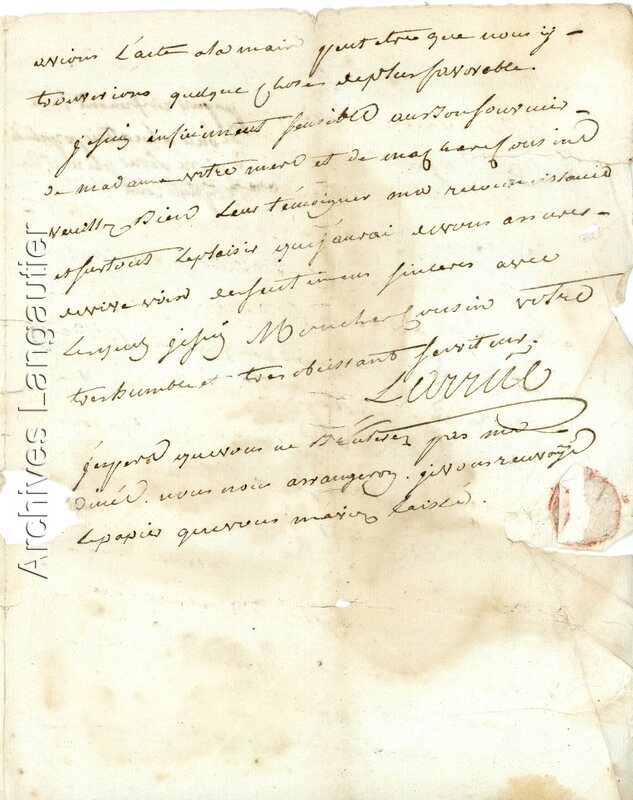 avions L'acte ala main peut etre que nous y
trouverions quelque chose de plus favorable.
je suis infiniment sensible au bon souvenir
de madame votre mere et de ma chere cousine
veuillez Bien Leur témoigner ma reconnoissance
et surtout Le plaisir que j'aurai de vous assurer
de vive voix des sentimens sinceres avec
Lesquels je suis Mon cher Cousin votre
tres humble et tres obeissant serviteur.
Larrue
j'espere que vous ne pas ma
nous nous arrangerons. je vous renvoye
Le papier que vous m'aviez laissé.
Archives Langautier